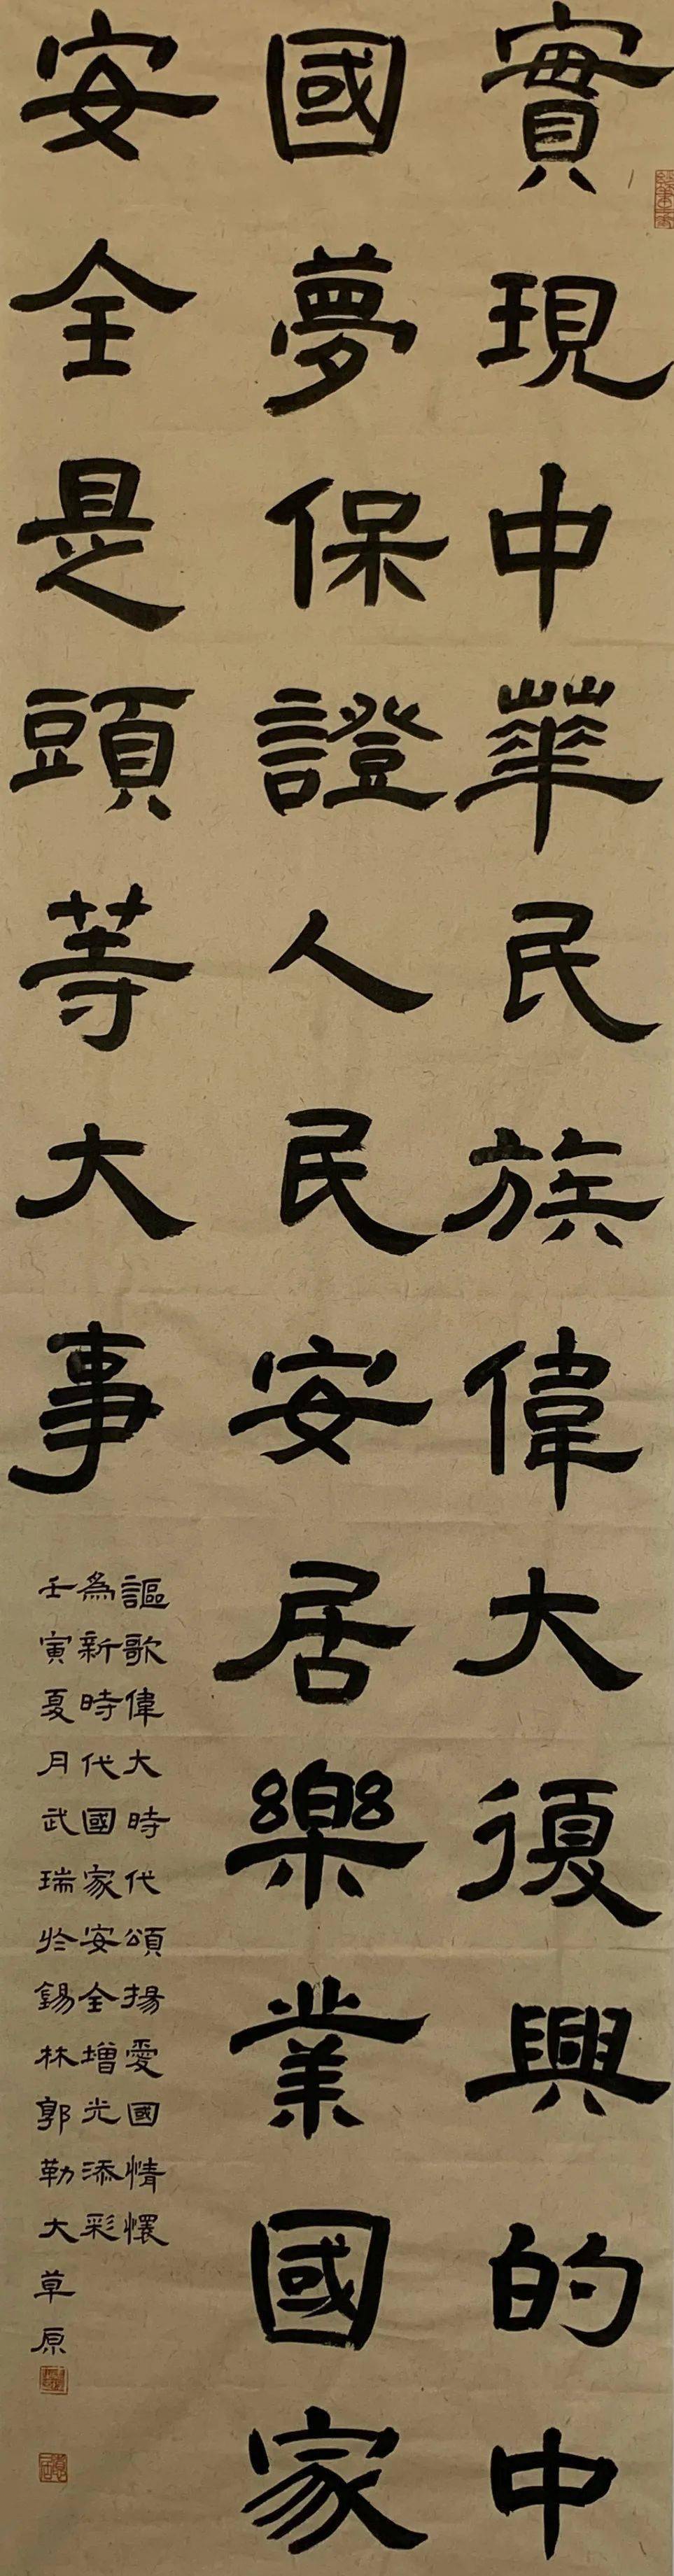 實現中華民族偉大復興的中
國夢保證人民安居樂業國家
安全是頭等大事
謳歌偉大時代頌揚愛國情懷
為新時代國家安全增光添彩
壬寅夏月武瑞於錫林郭勒大草原